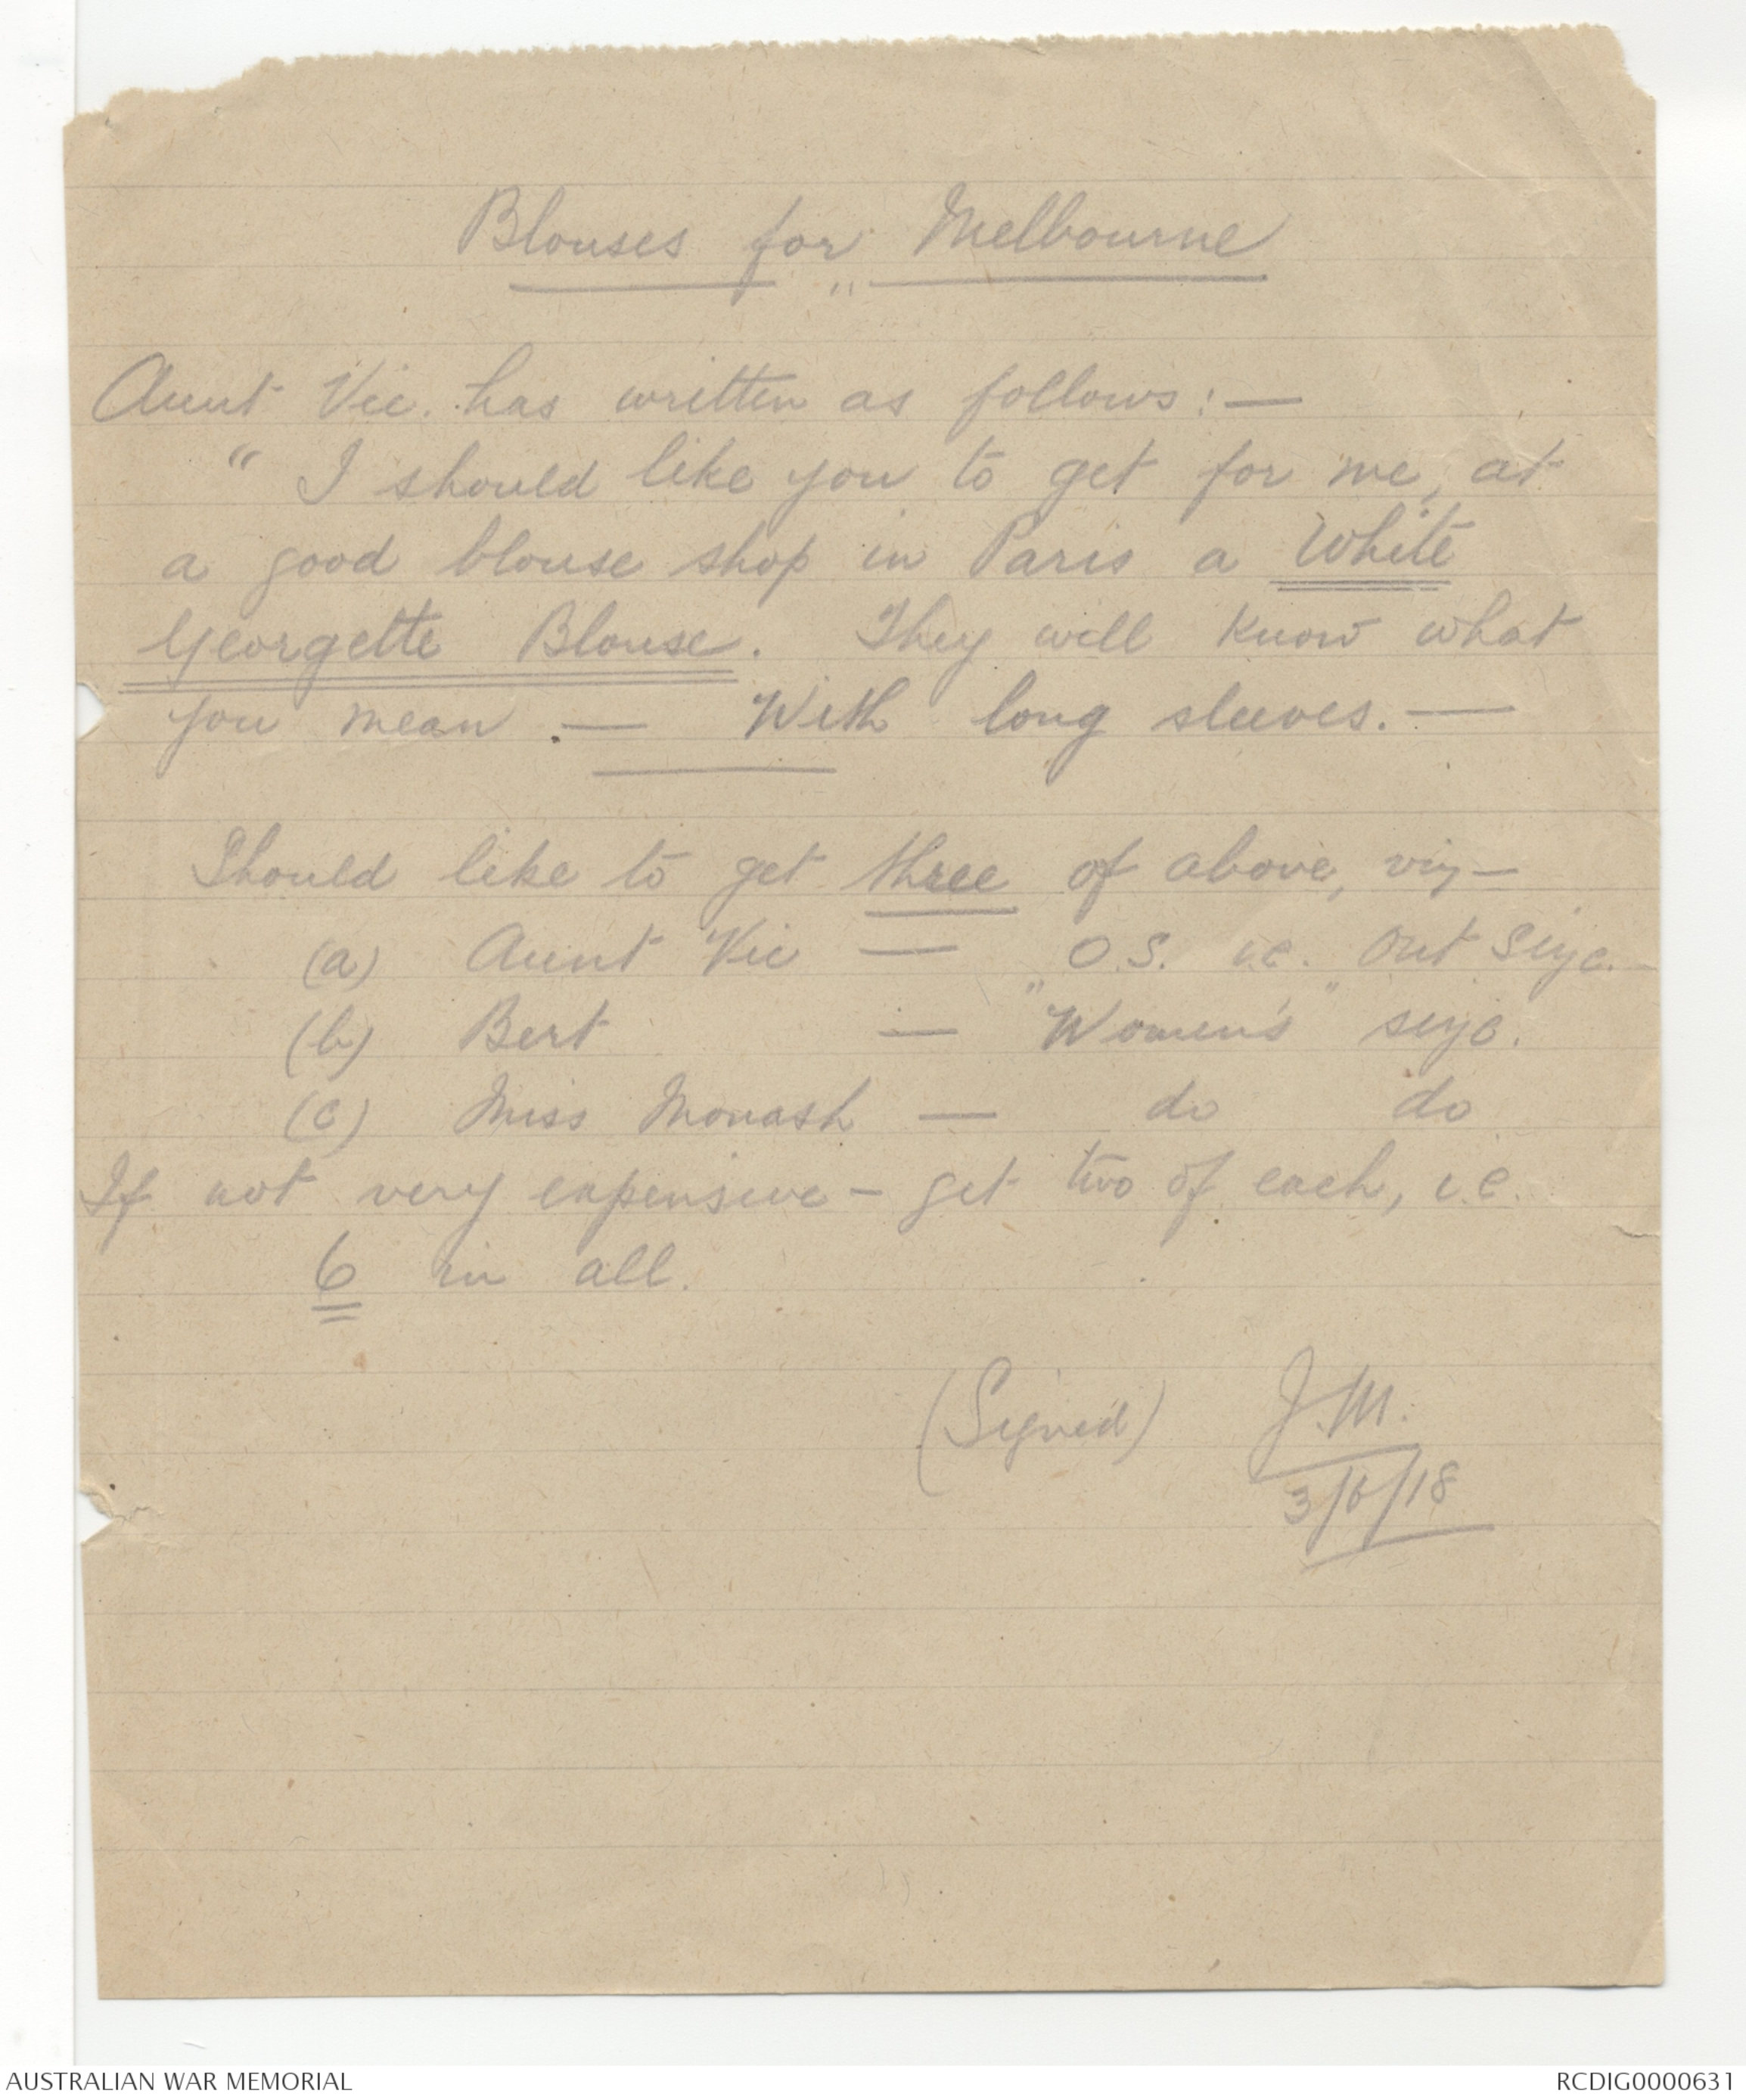 Blouses for Melbourne
"
Aunt Vic. has written as follows:—
" I should like you to get for me, at
a good blouse shop in Paris a White
Georgette Blouse. They will know what
you mean. — With long sleeves. —
Should like to get three of above, viz —
(a) Aunt Vic — O.S. i.e. Out Size.
(b) Bert — "Women's" size.
(c) Miss Monash — do do
If not very expensive — get two of each, i.e.
6 in all.
(Signed) J.M.
3/6/18
AUSTRALIAN WAR MEMORIAL
RCDIG0000631